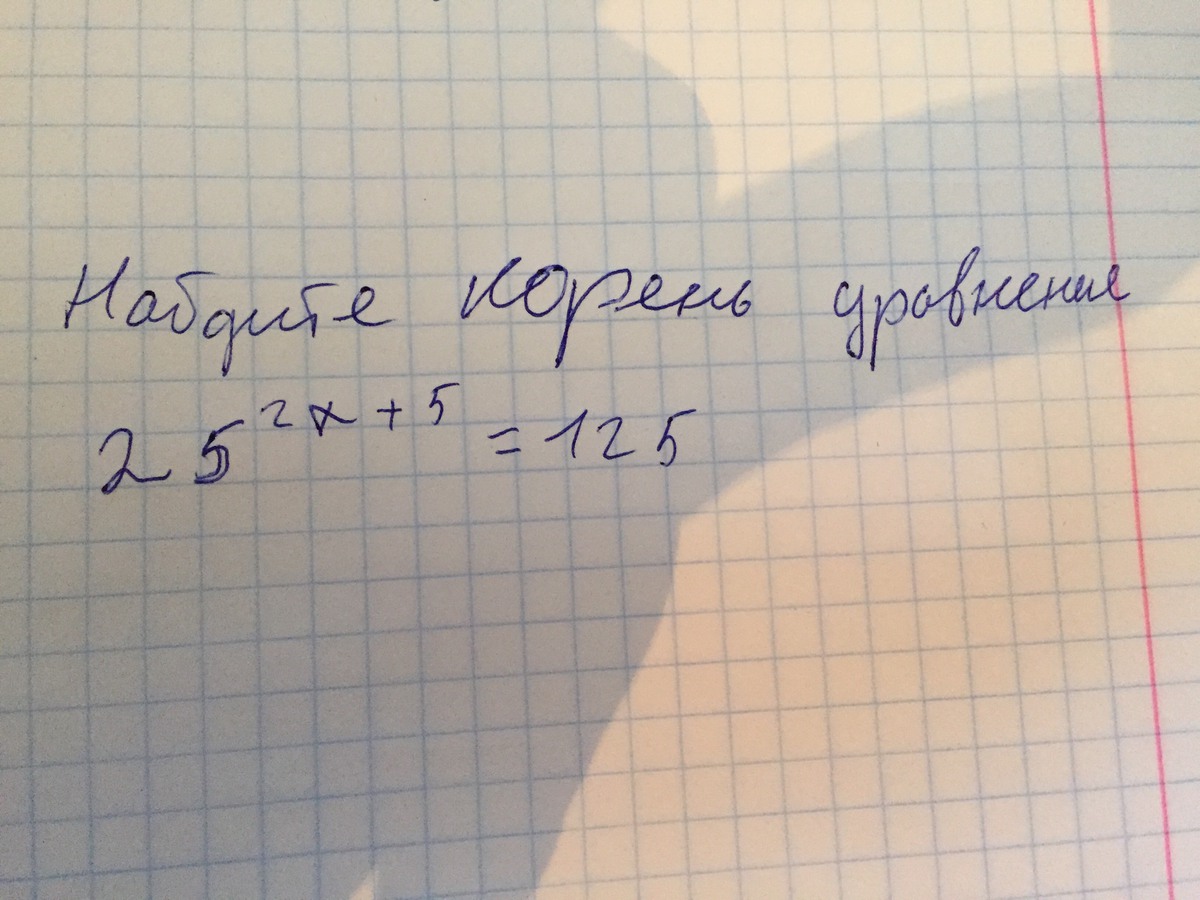 Найдите корень уравнения
25^{2x+5} = 125